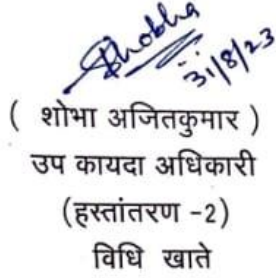 Shobha
31/8/23
( शोभा अजितकुमार )
उप कायदा अधिकारी
(हस्तांतरण -2)
विधि खाते